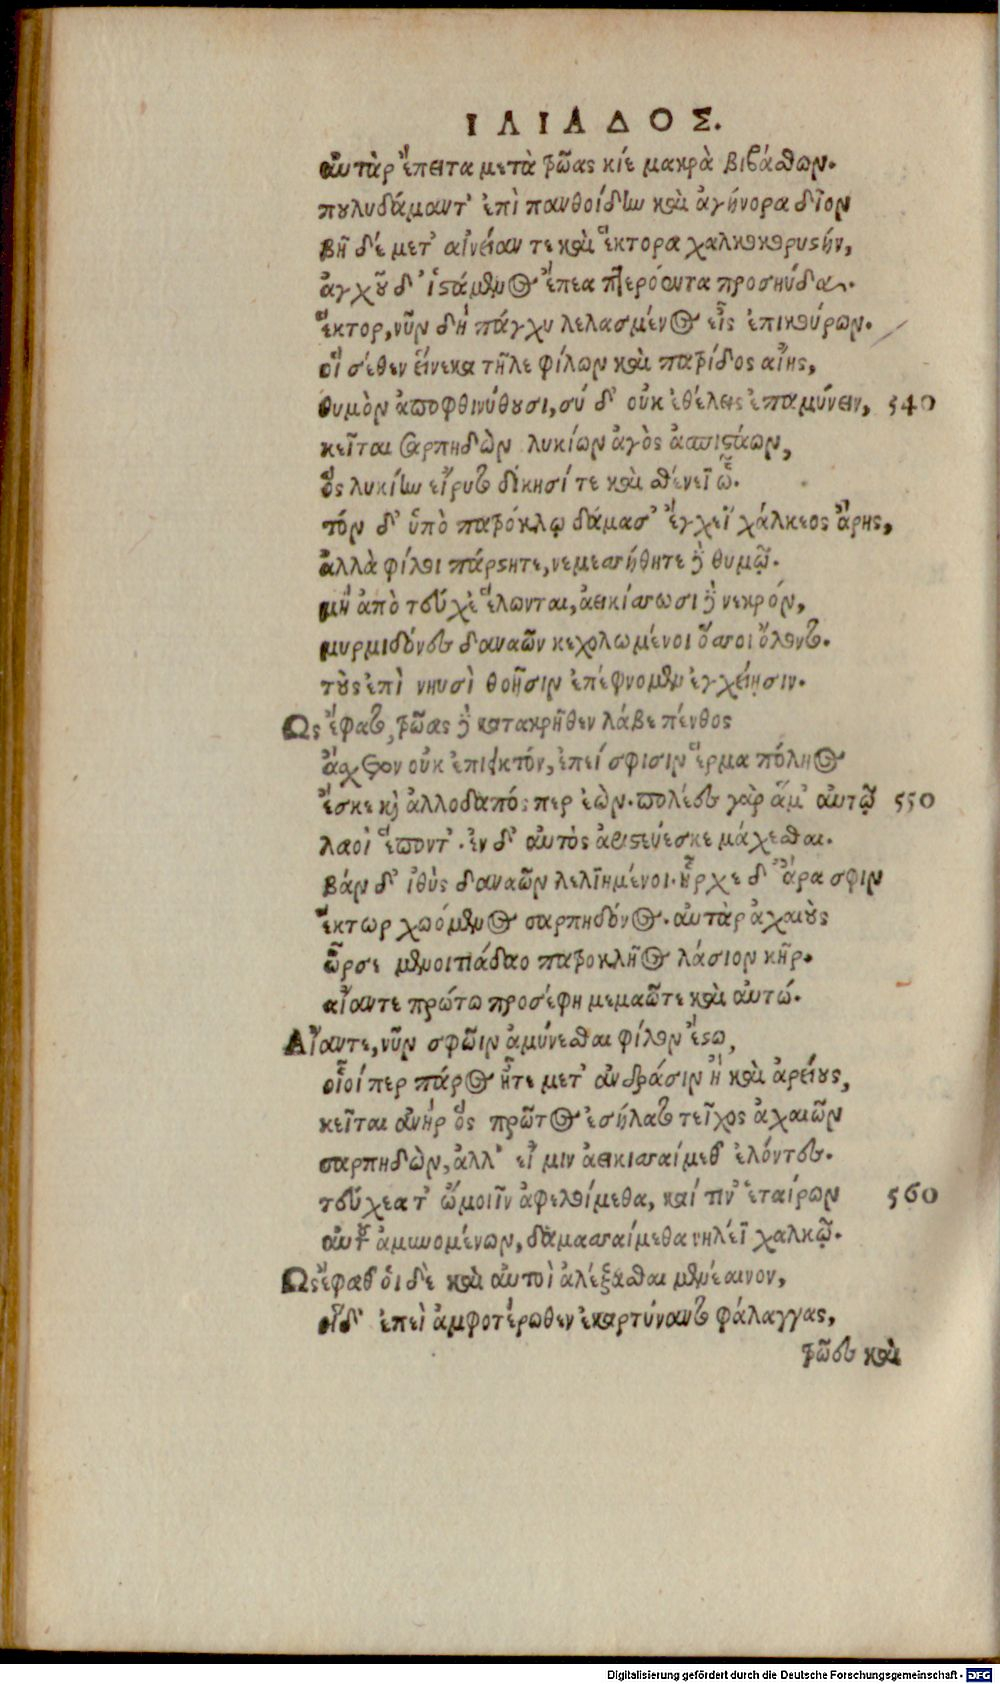 ΙΛΙΑΔΟΣ.
αὐτὰρ ἔπειτα μετὰ τρῶας κίε μακρὰ βιβάσθων.
πουλυδάμαντ' ἐπὶ πανθοίδην καὶ ἀγήνορα δῖον
βῆ δέ μετ' αἰνείαν τε καὶ ἕκτορα χαλκοκορυστήν,
ἀγχοῦ δ' ἱστάμενος ἔπεα πτερόεντα προσηύδα.
ἕκτορ, νῦν δὴ πάγχυ λελασμένος εἶς ἐπικούρων.
οἳ σέθεν εἵνεκα τῆλε φίλων καὶ πατρίδος αἴης,
θυμὸν ἀποφθινύθουσι, σύ δ' οὐκ ἐθέλεις ἐπαμύνειν, 540
κεῖται σαρπηδὼν λυκίων ἀγὸς ἀσπιστάων,
ὃς λυκίην εἴρυτο δίκησί τε καὶ σθένεϊ ᾧ.
τόν δ' ὑπὸ πατρόκλῳ δάμασ' ἔγχεϊ χάλκεος ἄρης,
ἀλλὰ φίλοι πάρστητε, νεμεσσήθητε δὲ θυμῷ.
μὴ ἀπὸ τεύχε' ἕλωνται, ἀεικίσσωσι δὲ νεκρόν,
μυρμιδόνες δαναῶν κεχολωμένοι ὅσσοι ὄλοντο.
τοὺς ἐπὶ νηυσὶ θοῇσιν ἐπέφνομεν ἐγχείῃσιν.
Ως ἔφατο, τρῶας δὲ κατακρῆθεν λάβε πένθος
ἄσχετον οὐκ ἐπιεικτόν, ἐπεί σφισιν ἕρμα πόληος
ἔσκε καὶ ἀλλοδαπός περ ἐὼν. πολέες γὰρ ἅμ' αὐτῷ 550
λαοὶ ἕποντ'. ἐν δ' αὐτὸς ἀριστεύεσκε μάχεσθαι.
βάν δ' ἰθὺς δαναῶν λελιημένοι. ἦρχε δ' ἄρα σφιν
ἕκτωρ χωόμενος σαρπηδόνος. αὐτὰρ ἀχαιοὺς
ὦρσε μενοιτιάδαο πατροκλῆος λάσιον κῆρ.
αἴαντε πρώτω προσέφη μεμαῶτε καὶ αὐτώ.
Αἴαντε, νῦν σφῶιν ἀμύνεσθαι φίλον ἔστω,
οἷοί περ πάρος ἦτε μετ' ἀνδράσιν ἢ καὶ ἀρείους,
κεῖται ἀνὴρ ὃς πρῶτος ἐσήλατο τεῖχος ἀχαιῶν
σαρπηδὼν, ἀλλ' εἴ μιν ἀεικισσαίμεθ' ἑλόντες.
τεύχεα τ' ὤμοιϊν ἀφελοίμεθα, καί τιν' ἑταίρων 560
αὐτοῦ ἀμυνομένων, δαμασσαίμεθα νηλέϊ χαλκῷ.
Ως ἔφαθ' οἱ δὲ καὶ αὐτοὶ ἀλέξασθαι μενέαινον,
οἵδ' ἐπεὶ ἀμφοτέρωθεν ἐκαρτύναντο φάλαγγας,
τρῶες καὶ
Digitalisierung gefördert durch die Deutsche Forschungsgemeinschaft - DFG